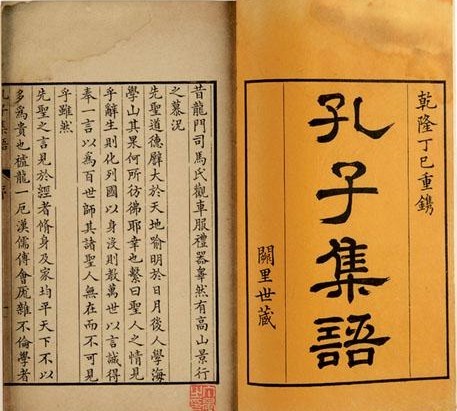 乾隆丁巳重鐫
孔子集語
闕里世藏
昔龍門司馬氏觀車服禮器睾然有高山景行
之慕況
先聖道德大於天地喻明於日月後人學海
學山其果何所彷彿耶幸也繫曰聖人之情見
乎辭生則化列國以身沒則教萬世以言誠得
奉一言以為百世師其諸聖人無在而不可見
乎雖然
先聖之言見於經者脩身及家均平天下不以
多為貴也龍一厄漢儒傅會厖雜不倫學者
孔子集語
序
一